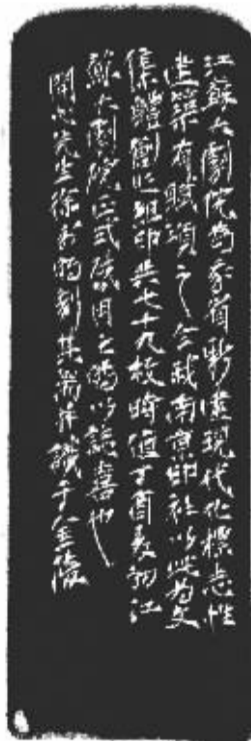 江蘇大劇院為我省新建現代化標志性
建築有賦頌之今我南京印社以此為文
集體創作組印共七十九枚時值丁酉夏初江
蘇大劇院正式啟用之時以誌喜也
先生徐刻其并識于金陵